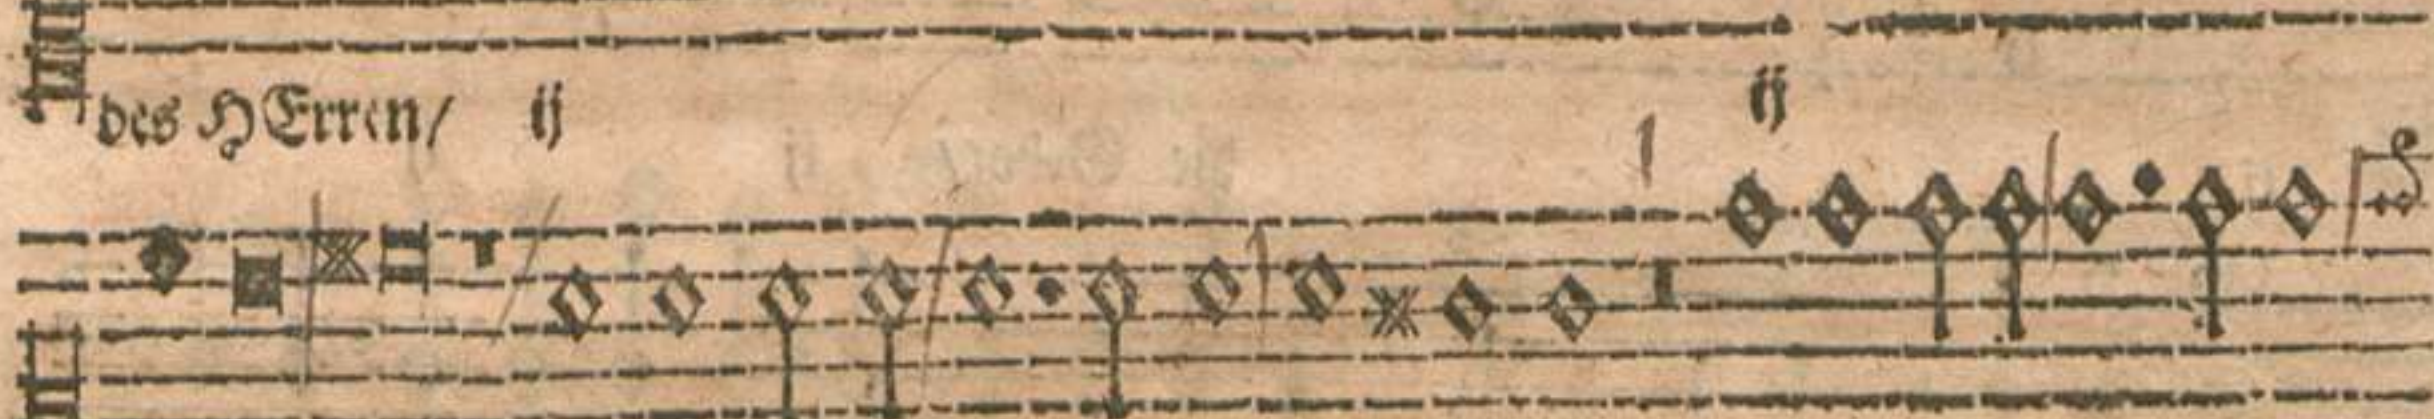 des HErren/ ij ij